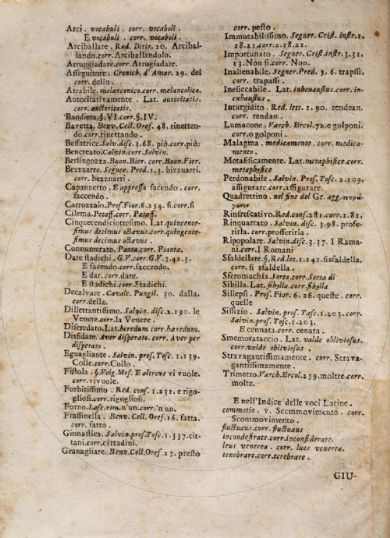 Arci. vocabuli. corr. vocaboli.
E vicabuli. corr. vocaboli.
Arciballare. Red. Ditir. 20. Arciballando. corr. Arciballandolo.
Arruggiadare. corr. Arrugiadare.
Asseguitore. Cronich. d'Amar. 29. del
corr. dello.
Atrabile. melanconico. corr. melancolico.
Autoritativamente. Lat. autoritatis.
corr. auctoritatis.
Bandiera. §. VI. corr. §. IV.
Baretta. Benv. Cell. Oref. 48. rinettendo. corr. rinettando.
Beffatrice. Salv. disc. 3.68. più. corr. più:
Bencreato. Calvin. corr. Salvin.
Berlingozza. Buon. Bier. corr. Buon. Fier.
Bezzuarro. Segner. Pred. 1.3. bizzuarri.
corr. bezzuarri.
Capannetto. E appresso facendo. corr.
faccendo.
Carrozzaio. Pros. Fior. 6.254. 6. corr. si
Cilema. Petaf. corr. Pataff.
Cinquecendiciottesimo. Lat. quingentesimus decimus octavus. corr. quingentesimus decimus octavus.
Connumerato. Panta. corr. Piante.
Dare stadichi. G. P. corr. G. V. 3.42.3.
E facendo. corr. faccendo.
E dar. corr. dare.
E stadichi. corr. Stadichi.
Decalvare. Cavale. Pungil. 30. dalla.
corr. della.
Dilettantissimo. Salvin. disc. 2.190. le
Venere. corr. la Venere.
Diseredato. Lat. heredum corr. haredum.
Disfidare. Aver desperato. corr. Aver per
disperato.
Eguagliante. Salvin. pros. Tosc. 1.139.
Colle. corr. Collo.
Fistola. §. Volg. Mes. E altrove vi vuole
corr. vi vuole.
Forbitissimo. Red. cons. 1.231. e rigogliosi. corr. rigogliosi.
Forno. Lasc. rim. n'un. corr. n'un.
Frassinella. Benv. Cell. Oref. 16. fatta.
corr. fatto.
Ginnastica. Salvin. pros. Tosc. 1.337. cittani. corr. cittadini.
Granagliare. Benv. Cell. Oref. 27. presto
corr. pesto.
Immutabilissimo. Segner. Crist. instr. 1.
18.21. corr. 2.18.21.
Importunato. Segner. Crist. instr. 3.31.
13. Non si. corr. Non.
Inalienabile. Segner. Pred. 3.6. trapssi.
corr. trapassi.
Ineseccabile. Lat. inhexaustus. corr. inexhaustus.
Inturgidito. Red. lett. 1.90. rendean.
corr. rendan.
Lumacone. Varch. Ercol. 72. e golponi.
corr. o golponi.
Malagma. medicamente. corr. medicamento.
Metafificamente. Lat. metaphisice. corr.
metaphysice
Perdonabile. Salvin. Pros. Tosc. 2.209.
assigurare. corr. assigurare.
Quadrettino. nel fine del Gr.
Rinfrescativo. Red. cons. 281. corr. 2.81.
Rinquartato. Salvin. disc. 3.98. proferirla. corr. profferirla.
Ripopolare. Salvin. disc. 3.37. I Ramani. corr. I Romani
Sfaldellare. §. Red. let. 1.141. 6 sfaldella.
corr. si sfaldella.
Sferomachia. Serza. corr. Sferza di
Sibilla. Lat. sibylla. corr. sibylla
Sillepsi. Pros. Fior. 6.26. queste. corr.
quelle
Sissizio. Salvin. pros. Tosc. 1.203. corr.
Salvin. pros. Tosc. 1.203.
E cennata. corr. cenata.
Smemorataccio. Lat. valde obliviosur.
corr. valde obliviosus
Stravagantissimamente. corr. Stravagantissimamente.
Trimetro. Varch. Ercol. 259. moltre. corr.
molte.
E nell'Indice delle voci Latine.
commotio. v. Scommovimento. corr.
Scommovimento.
fluctuans. corr. fluctuans
inconsiderate. corr. inconsiderate.
leus venerea. corr. lues venerea.
tenebrare. corr. terebrare.
GIU-